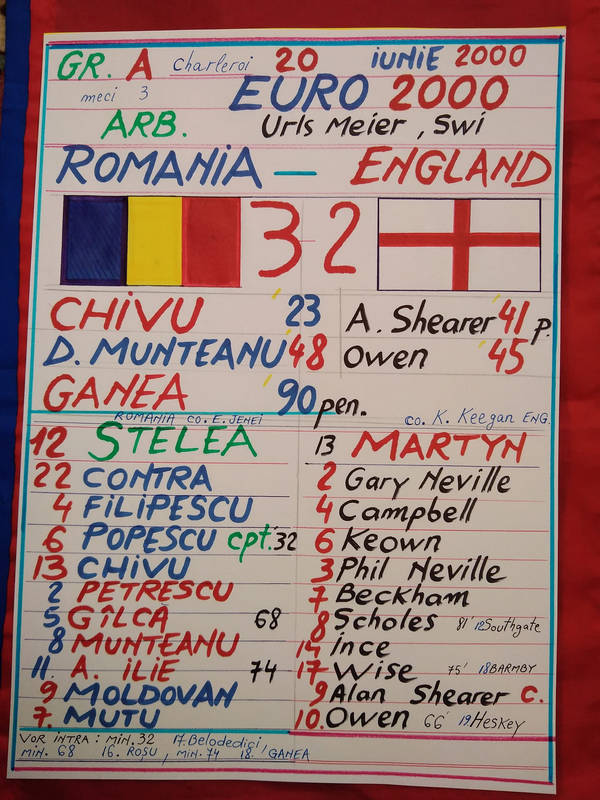 GR. A Charleroi 20 iUNiE 2000
meci 3 EURO 2000
ARB. Urls Meier , Swi
ROMANiA — ENGLAND
3 2
CHiVU 23' A. Shearer 41' p.
D. MUNTEANU 48' Owen 45'
GANEA 90' pen.
ROMANIA CO. E. JENEI co. K. Keegan ENG.
12 STELEA 13 MARTYN
22 CONTRA 2 Gary Neville
4 FiLiPESCU 4 Campbell
6 POPESCU cpt. 32 6 Keown
13 CHiVU 3 Phil Neville
2 PETRESCU 7 Beckham
5 GÎLCĂ 68 8 Scholes 81' 12 Southgate
8 MUNTEANU 14 ince
11. A. iLiE 74 17 Wise 75' 18 BARMBY
9 MOLDOVAN 9 Alan Shearer C.
7. MUTU 10. Owen 66' 19. Heskey
VOR INTRA : MIN. 32 17. Belodedici,
MIN. 68 16. ROȘU , MIN. 74 18. GANEA